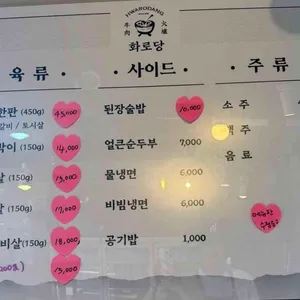 HWARODANG
牛肉 火爐
화로당
육류 · 사이드 · 주류
한판 (450g) 45,000
갈비 / 토시살
된장술밥 10,000
소주
박이 (150g) 14,000
얼큰순두부 7,000
맥주
살 (150g) 15,000
물냉면 6,000
음료
살 (150g) 17,000
비빔냉면 6,000
비살(150g) 18,000
공기밥 1,000
15,000